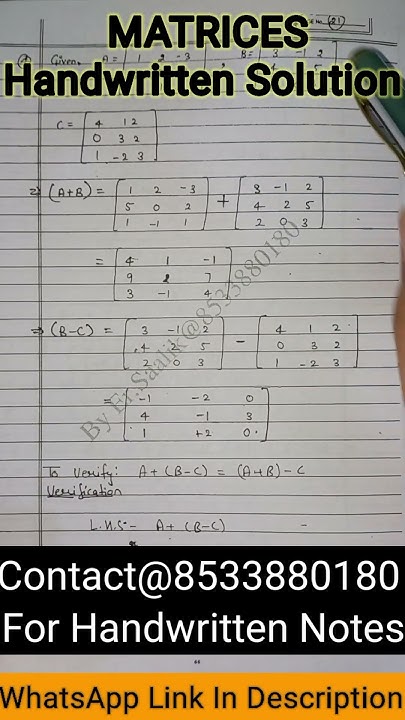 MATRICES
Handwritten Solution
Given A = 1 2 -3 , B = 3 -1 2
C = 4 1 2
0 3 2
1 -2 3
⇒ (A+B) = 1 2 -3 + 3 -1 2
5 0 2 4 2 5
1 -1 1 2 0 3
= 4 1 -1
9 2 7
3 -1 4
⇒ (B-C) = 3 -1 2 - 4 1 2
4 2 5 0 3 2
2 0 3 1 -2 3
= -1 -2 0
4 -1 3
1 +2 0
By Er. Saalik@8533880180
To Verify: A+(B-C) = (A+B)-C
Verification
L.H.S- A+ (B-C) -
Contact@8533880180
For Handwritten Notes
WhatsApp Link In Description